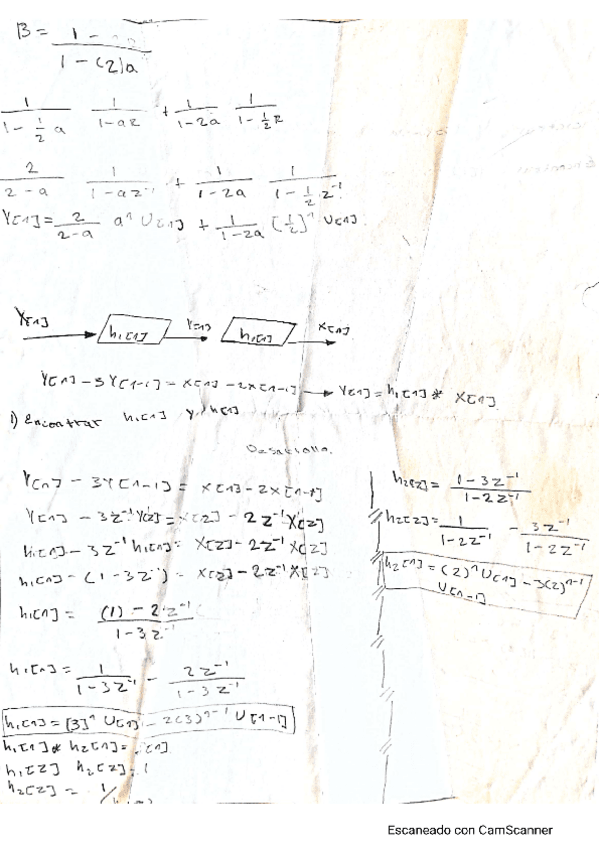 B = 1 - / 1 - (2)a
1 / 1 - 1/2 a   1 / 1-az + 1 / 1-2a   1 / 1 - 1/2 z
2 / 2-a   1 / 1-az⁻¹ + 1 / 1-2a   1 / 1 - 1/2 z⁻¹
Y[n] = 2 / 2-a aⁿ U[n] + 1 / 1-2a [1/2]ⁿ U[n]
X[n] h₁[n] Y[n] h₁[n] X[n]
Y[n] - 3Y[n-1] = X[n] - 2X[n-1] → Y[n] = h₁[n] * X[n]
1) Encontrar h₁[n] y h[n]
Desarrollo.
Y[n] - 3Y[n-1] = X[n] - 2X[n-1]
Y[n] - 3z⁻¹ Y[z] = X[z] - 2z⁻¹ X[z]
h₁[n] - 3z⁻¹ h₁[n] = X[z] - 2z⁻¹ X[z]
h₁[n] - (1 - 3z⁻¹) = X[z] - 2z⁻¹ X[z]
h₁[n] = (1) - 2z⁻¹ / 1 - 3z⁻¹
h₁[n] = 1 / 1 - 3z⁻¹ - 2z⁻¹ / 1 - 3z⁻¹
h₁[n] = [3]ⁿ U[n] - 2(3)ⁿ⁻¹ U[n-1]
h₁[n] * h₂[n] = [n]
h₁[z] h₂[z] = 1
h₂[z] = 1/
h₂[z] = 1 - 3z⁻¹ / 1 - 2z⁻¹
h₂[z] = 1 / 1 - 2z⁻¹ - 3z⁻¹ / 1 - 2z⁻¹
h₂[n] = (2)ⁿ U[n] - 3(2)ⁿ⁻¹
U[n-1]
Escaneado con CamScanner